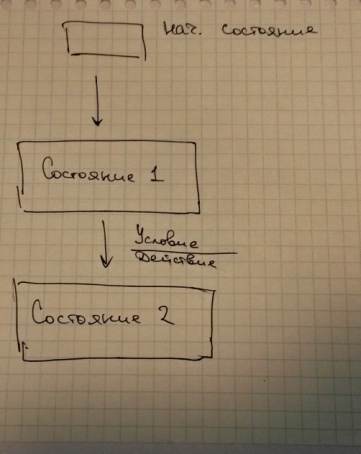 нач. состояние
Состояние 1
Условие
Действие
Состояние 2